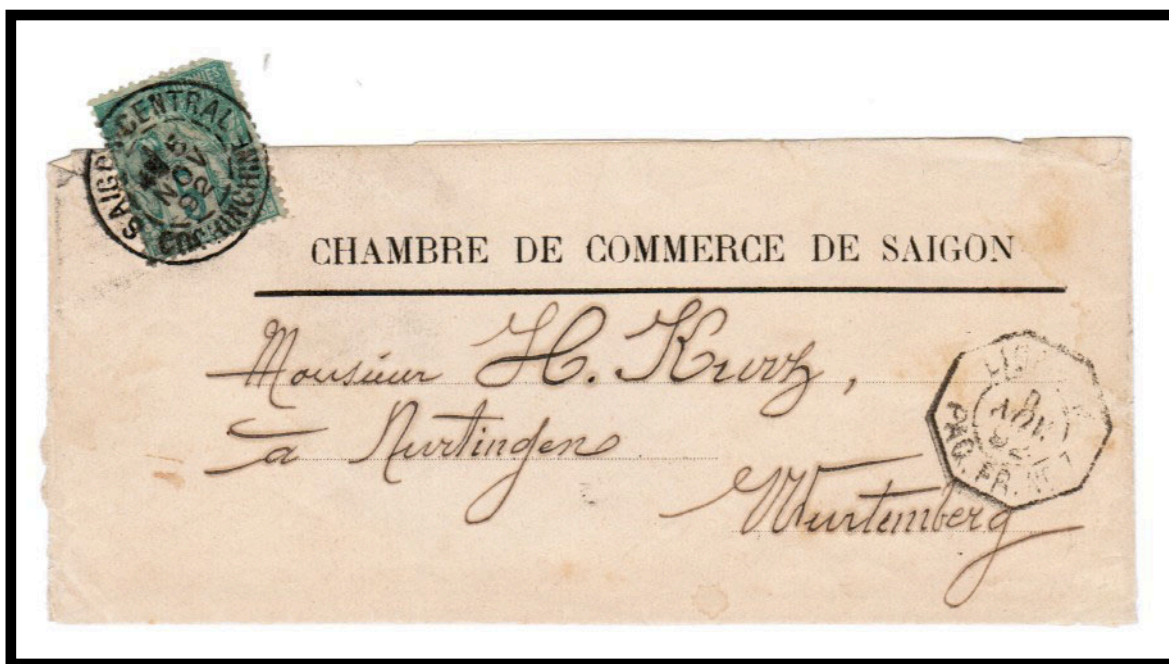 SAIGON-CENTRAL
5
NOV
92
COCHINCHINE
CHAMBRE DE COMMERCE DE SAIGON
Monsieur H. Kurtz,
à Nurtingen
Wurtemberg
NOV.
92
PAQ. FR.